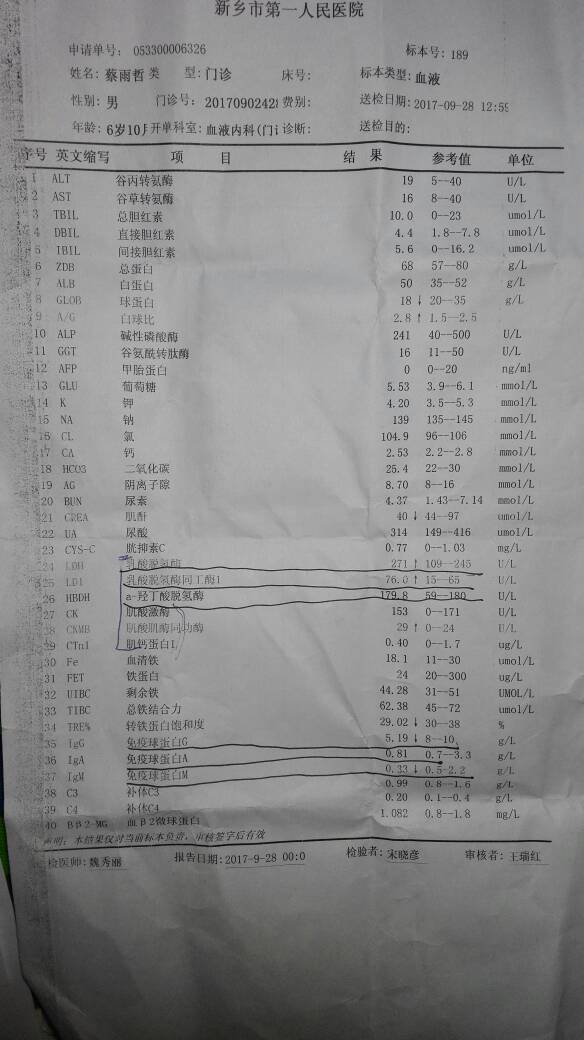 新乡市第一人民医院
申请单号: 053300006326 标本号: 189
姓名: 蔡雨哲 类 型: 门诊 床号: 标本类型: 血液
性别: 男 门诊号: 2017090242 费别: 送检日期: 2017-09-28 12:59
年龄: 6岁10 开单科室: 血液内科(门 诊断: 送检目的:
序号 英文缩写 项 目 结 果 参考值 单位
1 ALT 谷丙转氨酶 19 5--40 U/L
2 AST 谷草转氨酶 16 8--40 U/L
3 TBIL 总胆红素 10.0 0--23 umol/L
4 DBIL 直接胆红素 4.4 1.8--7.8 umol/L
5 IBIL 间接胆红素 5.6 0--16.2 umol/L
6 ZDB 总蛋白 68 57--80 g/L
7 ALB 白蛋白 50 35--52 g/L
8 GLOB 球蛋白 18 ↓ 20--35 g/L
9 A/G 白球比 2.8 ↑ 1.5--2.5
10 ALP 碱性磷酸酶 241 40--500 U/L
11 GGT 谷氨酰转肽酶 16 11--50 U/L
12 AFP 甲胎蛋白 0 0--20 ng/ml
13 GLU 葡萄糖 5.53 3.9--6.1 mmol/L
14 K 钾 4.20 3.5--5.3 mmol/L
15 NA 钠 139 135--145 mmol/L
16 CL 氯 104.9 96--106 mmol/L
17 CA 钙 2.53 2.2--2.8 mmol/L
18 HCO3 二氧化碳 25.4 22--30 mmol/L
19 AG 阴离子隙 8.70 8--16 mmol/L
20 BUN 尿素 4.37 1.43--7.14 mmol/L
21 CREA 肌酐 40 ↓ 44--97 umol/L
22 UA 尿酸 314 149--416 umol/L
23 CYS-C 胱抑素C 0.77 0--1.03 mg/L
24 LDH 乳酸脱氢酶 271 ↑ 109--245 U/L
25 LD1 乳酸脱氢酶同工酶1 76.0 ↑ 15--65 U/L
26 HBDH a-羟丁酸脱氢酶 179.8 59--180 U/L
27 CK 肌酸激酶 153 0--171 U/L
28 CKMB 肌酸肌酶同功酶 29 ↑ 0--24 U/L
29 CTnI 肌钙蛋白I 0.40 0--1.7 ug/L
30 Fe 血清铁 18.1 11--30 umol/L
31 FET 铁蛋白 24 20--300 ug/L
32 UIBC 剩余铁 44.28 31--51 UMOL/L
33 TIBC 总铁结合力 62.38 45--72 umol/L
34 TRE% 转铁蛋白饱和度 29.02 ↓ 30--38 %
35 IgG 免疫球蛋白G 5.19 ↓ 8--10 g/L
36 IgA 免疫球蛋白A 0.81 0.7--3.3 g/L
37 IgM 免疫球蛋白M 0.33 ↓ 0.5-2.2 g/L
38 C3 补体C3 0.99 0.8--1.6 g/L
39 C4 补体C4 0.20 0.1--0.4 g/L
40 Bβ2-MG 血β2微球蛋白 1.082 0.8--1.8 mg/L
声明: 本结果仅对当前标本负责, 审核签字后有效
检医师: 魏秀丽 报告日期: 2017-9-28 00:0 检验者: 宋晓彦 审核者: 王瑞红